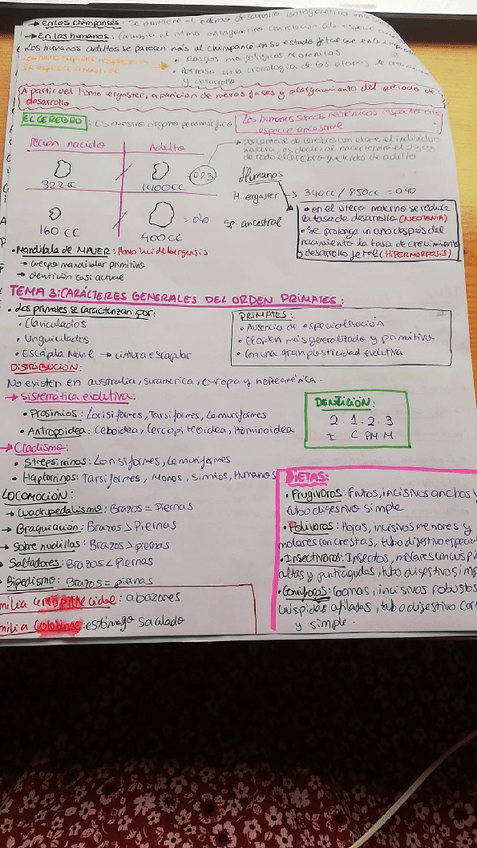 → En los chimpancés: Se mantiene el mismo desarrollo ontogenético
→ En los humanos: Cambia el ritmo ontogenético con relación a la especie
Los humanos adultos se parecen más al chimpancé en su estado fetal que en
• Rasgos morfológicos neoténicos
• Retraso en la cronología de las etapas de crecimiento
y desarrollo
A partir del Homo ergaster, aparición de nuevas fases y alargamiento del periodo de
desarrollo
EL CEREBRO: es nuestro órgano peramórfico
Los humanos somos neoténicos respecto a la
especie ancestral
Recién nacido
Adulto
322 cc
1400 cc
0'23
160 cc
400 cc
= 0'40
porcentaje de cerebro con el que el individuo
nacería, es decir, al nacer tendría el 23%
de todo el cerebro que tendrá de adulto
Humanos
H. ergaster → 340cc / 850cc = 0'40
Sp. ancestral
• en el útero materno se reduce
la tasa de desarrollo (NEOTENIA)
• Se prolonga un año después del
nacimiento la tasa de crecimiento
y desarrollo fetal (HIPERMORFOSIS)
• Mandíbula de MAUER: Homo heidelbergensis
→ cuerpo mandibular primitivo
→ dentición casi actual
TEMA 3: CARÁCTERES GENERALES DEL ORDEN PRIMATES:
• Los primates se caracterizan por:
• Claviculados
• Unguiculados
• Escápula móvil → cintura escapular
PRIMATES:
• Ausencia de especialización
• El orden más generalizado y primitivo
• Con una gran plasticidad evolutiva
DISTRIBUCIÓN:
No existen en australia, suramerica, europa y norteamérica.
→ Sistemática evolutiva:
• Prosimios: Lorisiformes, Tarsiformes, Lemuriformes
• Antropoidea: Ceboidea, Cercopitecoidea, Hominoidea
DENTICIÓN:
2 . 1 . 2 . 3
I C PM M
→ Cladismo:
• Strepsirrinos: Lorisiformes, Lemuriformes
• Haplorrinos: Tarsiformes, Monos, Simios, Humanos
LOCOMOCIÓN:
→ Cuadrupedalismo: Brazos = Piernas
→ Braquiación: Brazos > Piernas
→ Sobre nudillos: Brazos > piernas
→ Saltadores: Brazos < Piernas
Bipedismo: Brazos = piernas
milia cercopithecidae: abazones
milia Colobinae: estómago saculado
DIETAS:
• Frugívoros: frutos, incisivos anchos y
tubo digestivo simple
• Folívoros: Hojas, incisivos menores y
molares con crestas, tubo digestivo
• Insectívoros: Insectos, molares con cúspides
altas y puntiagudas, tubo digestivo simple
• Gomíforos: Gomas, incisivos robustos
cúspides afiladas, tubo digestivo corto
y simple.